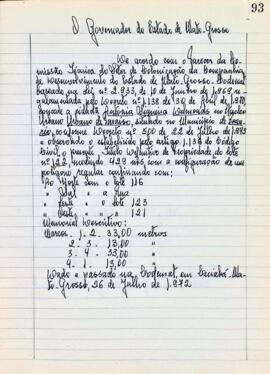 93
O Governador do Estado de Mato Grosso
De acordo com o Parecer da Co-
missão Técnica do Setor de Colonização da Companhia
de Desenvolvimento do Estado de Mato Grosso - Codemat
baseado na lei nº 2.933, de 10 de Junho de 1969, re-
gulamentada pelo Decreto nº 1.138 de 30 de Abril de 1970,
concede a
no Núcleo
Urbano situado no Município de
conforme Decreto nº 500 de 22 de Julho de 1972
e observando o estabelecido pelo artigo 1.136 do Código
Civil, o presente Título Definitivo de Propriedade do lote
nº 122, medindo 429 m2 com a configuração de um
polígono regular confinando com:
Ao Norte com o lote 116
" Sul " a rua
" Leste " o lote 123
" Oeste " " " 121
Memorial Descritivo:
Marcos - 1 - 2 - 33,00 metros
2 - 3 - 13,00 "
3 - 4 - 33,00 "
4 - 1 - 13,00 "
Dado e passado na Codemat, em Cuiabá - Ma-
to Grosso, 26 de Julho de 1.972